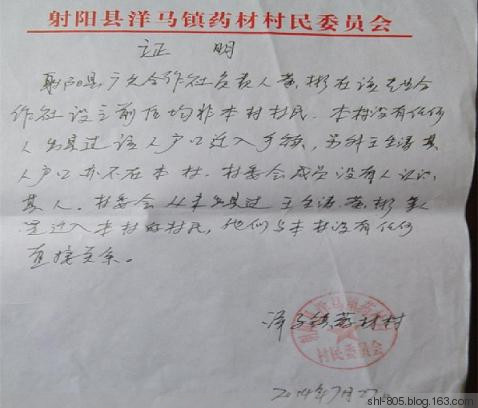 射阳县洋马镇药材村村民委员会
证 明
射阳县广元合作社负责人黄彬在该专业合
作社设立前后均非本村村民。本村没有任何
人出具过该人户口迁入手续，另外王生涛其
人户口亦不在本村。村委会成员没有人认识
其人。村委会从未出具过王生涛、黄彬等人
迁入本村的村民，他们与本村没有任何
直接关系。
洋马镇药材村
村民委员会
2014年7月27
shl-805.blog.163.com